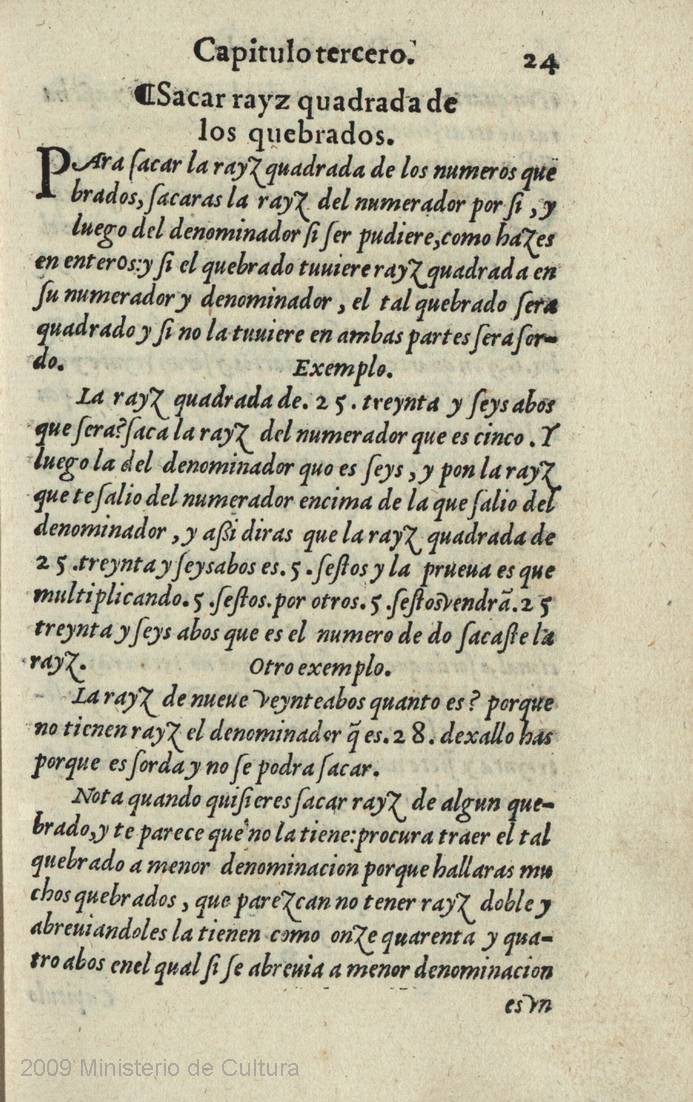 Capitulo tercero. 24
¶Sacar rayz quadrada de
los quebrados.
PAra ſacar la rayz quadrada de los numeros que
brados, ſacaras la rayz del numerador por ſi, y
luego del denominador ſi ſer pudiere, como hazes
en enteros: y ſi el quebrado tuuiere rayz quadrada en
ſu numerador y denominador, el tal quebrado ſera
quadrado y ſi no la tuuiere en ambas partes ſera ſor-
do. Exemplo.
La rayz quadrada de. 25. treynta y ſeys abos
que ſera? ſaca la rayz del numerador que es cinco. Y
luego la del denominador quo es ſeys, y pon la rayz
que te ſalio del numerador encima de la que ſalio del
denominador, y aßi diras que la rayz quadrada de
25. treynta y ſeysabos es. 5. ſeſtos y la prueua es que
multiplicando. 5. ſeſtos. por otros. 5. ſeſtos vendrã. 25
treynta y ſeys abos que es el numero de do ſacaſte la
rayz. Otro exemplo.
La rayz de nueue veynteabos quanto es? porque
no tienen rayz el denominader q̃ es. 28. dexallo has
porque es ſorda y no ſe podra ſacar.
Nota quando quiſieres ſacar rayz de algun que-
brado, y te parece que no la tiene: procura traer el tal
quebrado a menor denominacion porque hallaras mu
chos quebrados, que parezcan no tener rayz doble y
abreuiandoles la tienen como onze quarenta y qua-
tro abos enel qual ſi ſe abreuia a menor denominacion
es vn
2009 Ministerio de Cultura